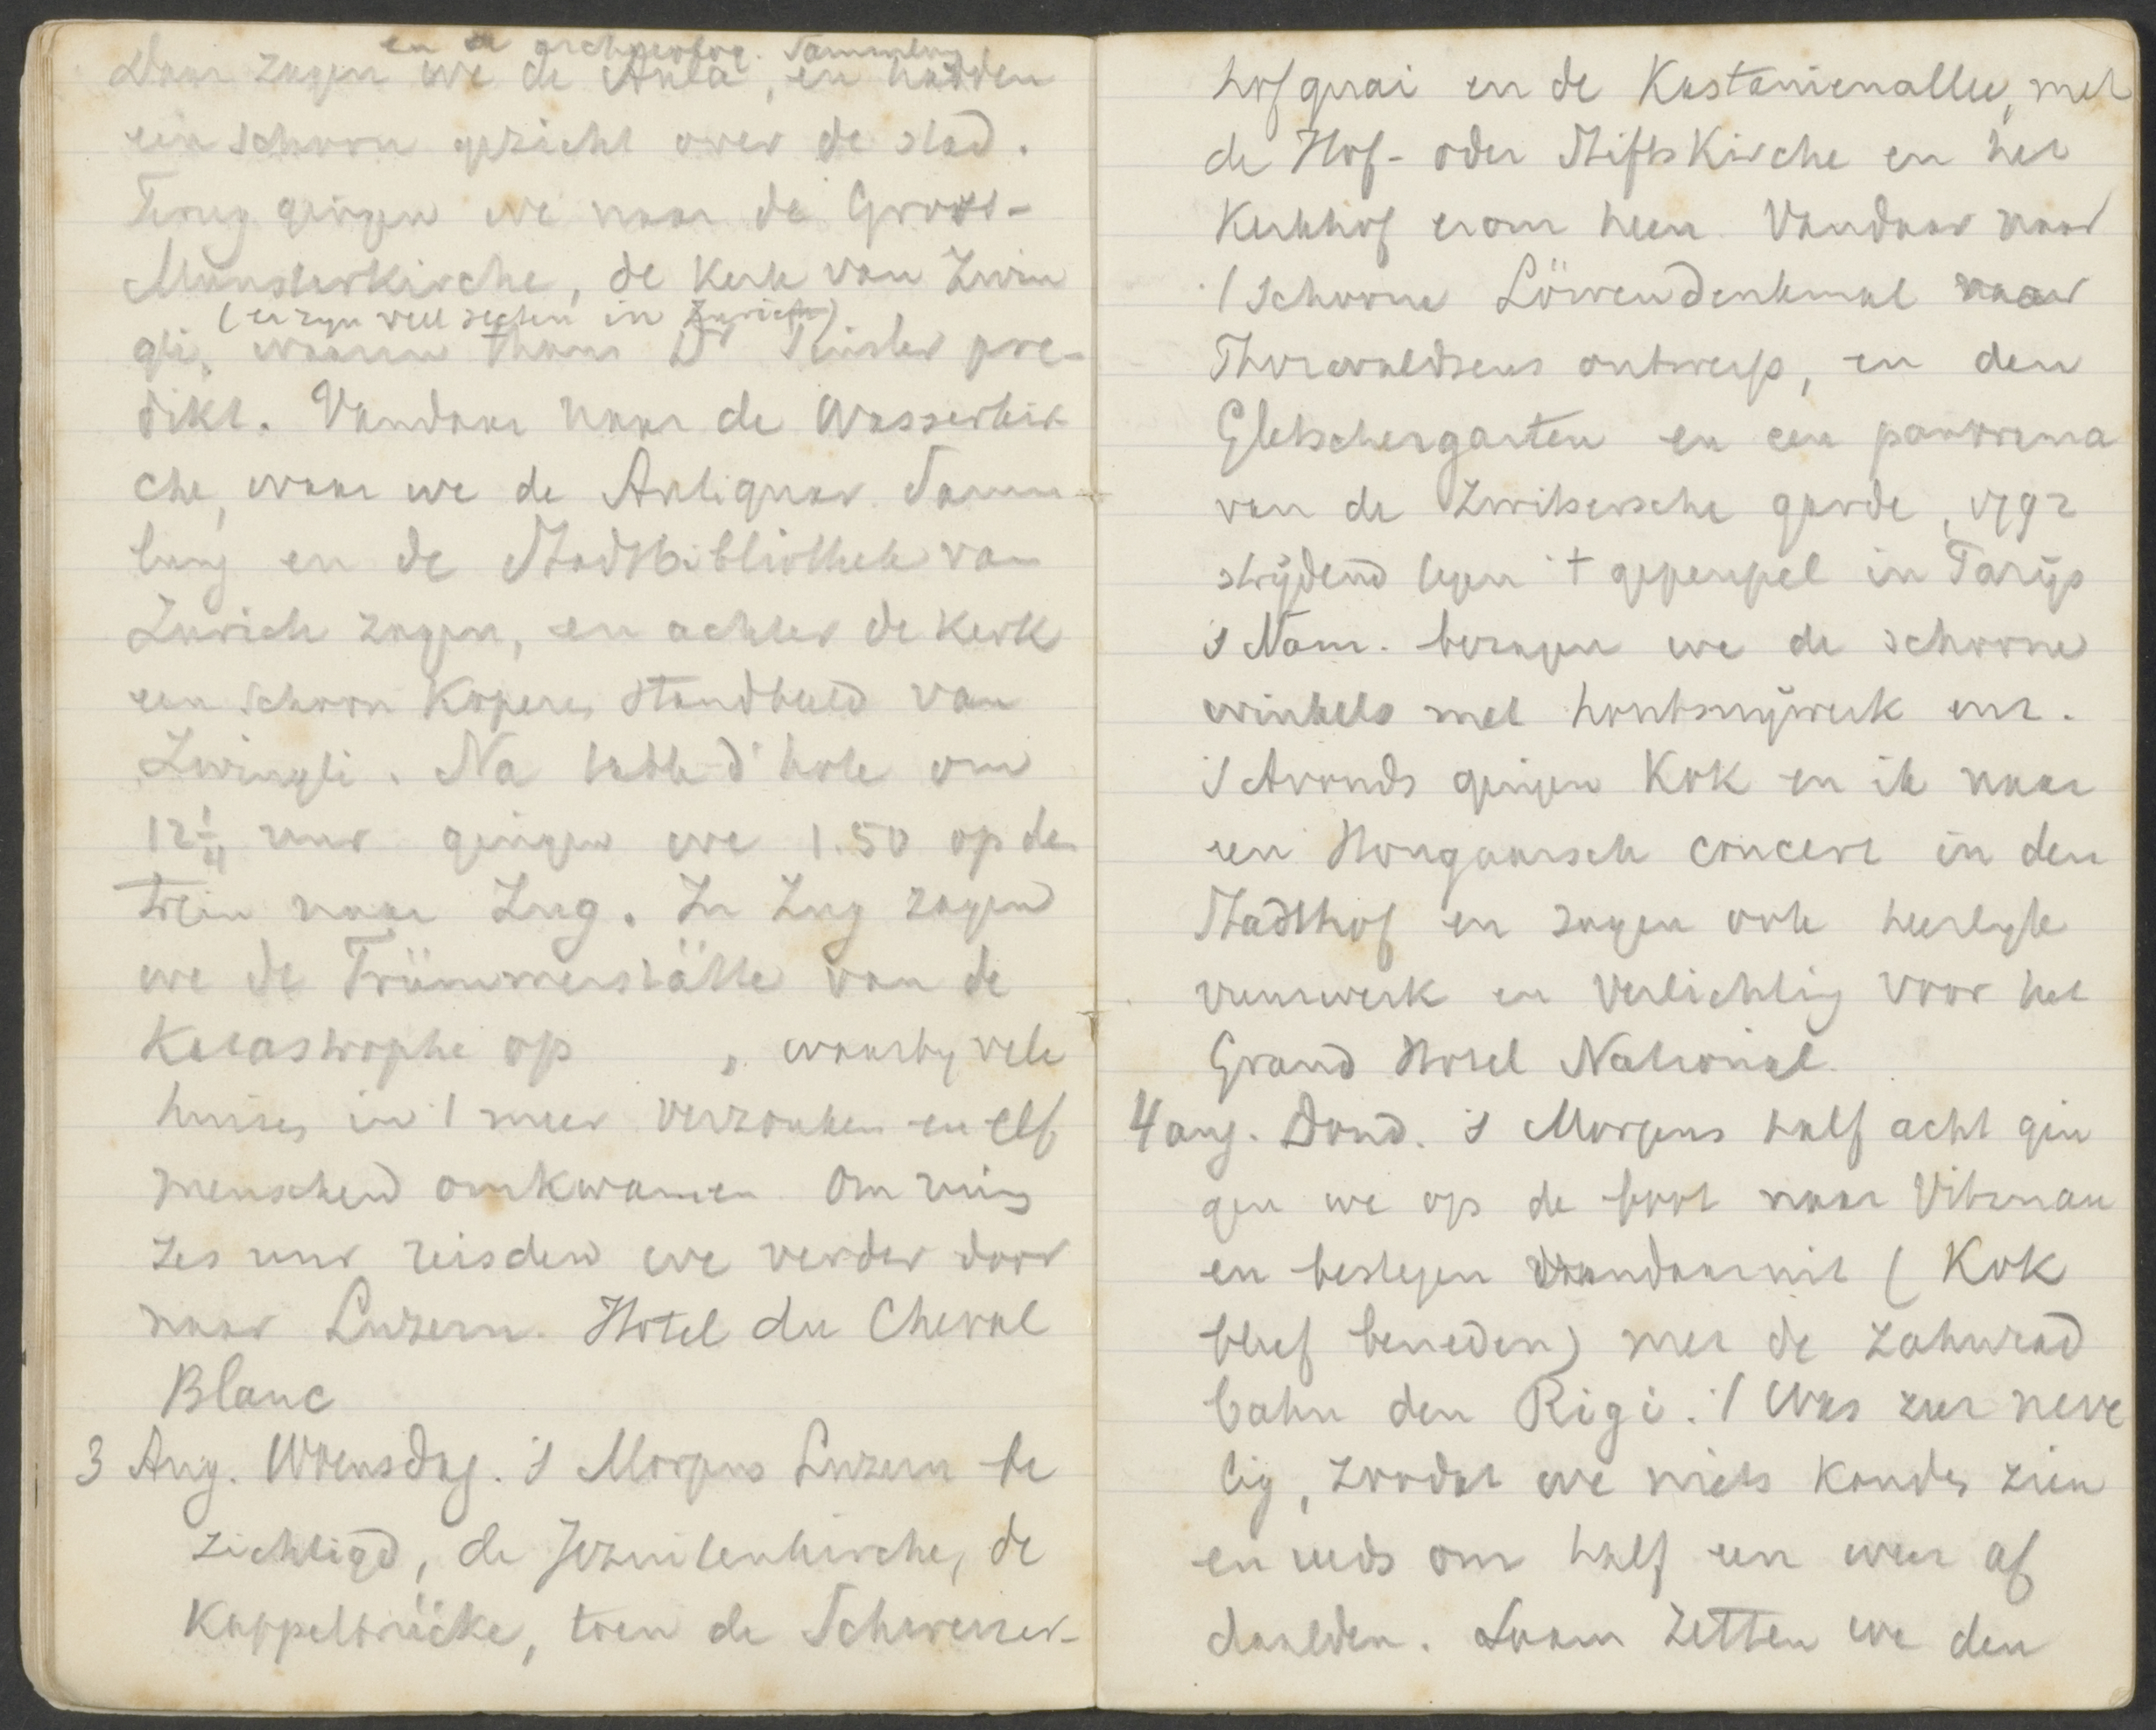 en de archaeolog. Sammlung
Daar zagen we de Aula, en hadden
een schoon gezicht over de stad.
Terug gingen we naar de Gross-
Munsterkirche, de kerk van Zwin
(er zyn veel secten in Zurich)
gli, waarin thans Dr Finsler pre-
dikt. Vandaar naar de Wasserkir-
che, waar we de Antiquar. Samm-
lung en de Stadtbibliothek van
Zurich zagen, en achter de kerk
een schoon koperen standbeeld van
Zwingli. Na table d'hote om
12¼ uur gingen we 1.50 op den
trein naar Zug. In Zug zagen
we de Trümmerstätte van de
Katastrophe op , waarby vele
huizen in 't meer verzonken en elf
menschen omkwamen. Om ruim
zes uur reisden we verder door
naar Luzern. Hotel du Cheval
Blanc
3 Aug. Woensdag. 's Morgens Luzern be
zichtigd, de Jezuitenkirche, de
Kappelbrücke, toen de Schweizer-
hofquai en de Kastanienallee, met
de Hof- oder Stiftskirche en het
Kerkhof erom heen. Vandaar naar
't schoone Löwendenkmal naar
Thorwaldsens ontwerp, en den
Gletschergarten en een panorama
van de Zwitsersche garde, 1792
strijdend tegen 't gepeupel in Parijs
's Nam. bezagen we de schoone
winkels met houtsnijwerk enz.
's Avonds gingen Kok en ik naar
een Hongaarsch concert in den
Stadthof en zagen ook heerlyk
vuurwerk en verlichting voor het
Grand Hotel National.
4 aug. Dond. 's Morgens half acht gin
gen we op de boot naar Vitznau
en bestegen vandaaruit (Kok
bleef beneden) met de Zahnrad
bahn den Rigi. 't Was zeer neve
lig, zoodat we niets konden zien
en reeds om half een weer af
daalden. Daarn zetten we den